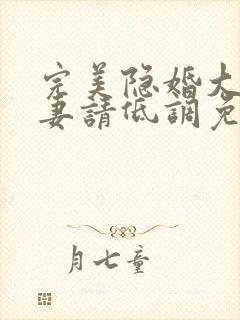 完美隐婚大
妻請低調免
月七童